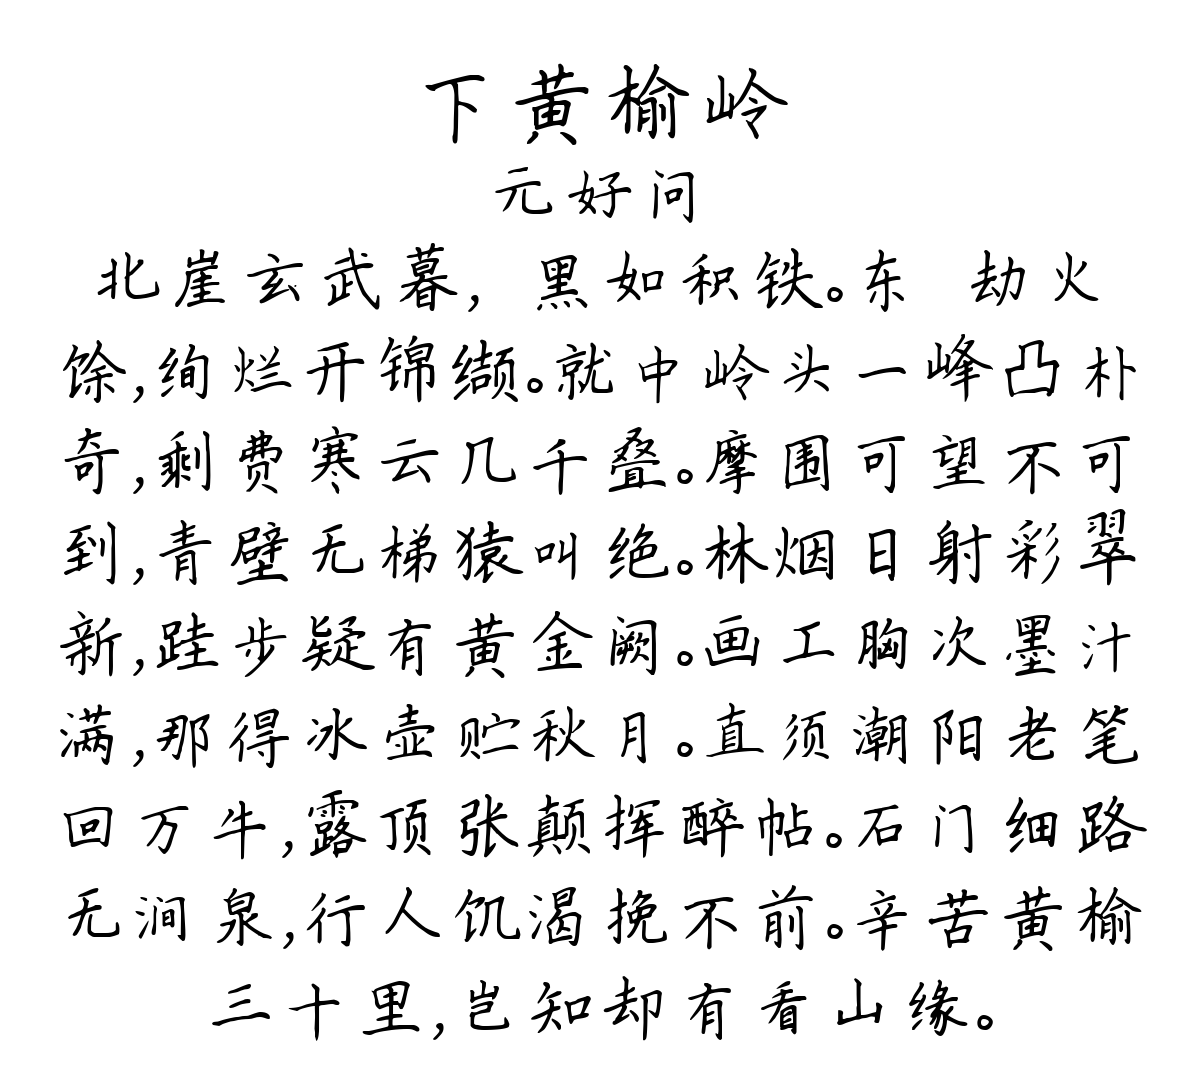 下黄榆岭
元好问
北崖玄武暮，黑如积铁。东 劫火
馀，绚烂开锦缬。就中岭头一峰凸朴
奇，剩费寒云几千叠。摩围可望不可
到，青壁无梯猿叫绝。林烟日射彩翠
新，跬步疑有黄金阙。画工胸次墨汁
满，那得冰壶贮秋月。直须潮阳老笔
回万牛，露顶张颠挥醉帖。石门细路
无涧泉，行人饥渴挽不前。辛苦黄榆
三十里，岂知却有看山缘。